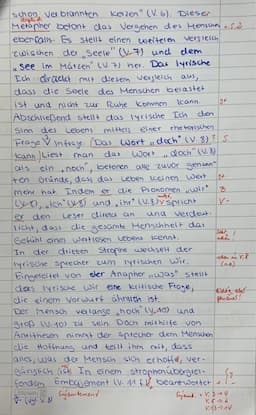 schon verbrannten Kerzen" (V. 6). Dieser
Vergleich
Metapher betont das Vergehen des Menschen
ebenfalls. Es stellt einen weiteren Vergleich
zwischen der „Seele" (V. 7) und dem
„See im Märzen" (V. 7) her. Das lyrische
Ich drückt mit diesem Vergleich aus,
dass die Seele des Menschen belastet
ist und nicht zur Ruhe kommen kann.
Abschließend stellt das lyrische Ich den
Sinn des Lebens mittels einer rhetorischen
Frage infrage. Das Wort „doch" (V. 8)
kann liest man das Wort „doch" (V. 8)
als ein „noch", betonen alle zuvor genann-
ten Gründe, dass das Leben keinen Wert
mehr hat. Indem er die Pronomen „wir"
(V. 8), „ich" (V. 8) und „ihr" (V. 8) spricht
er den Leser direkt an und verdeut-
licht, dass die gesamte Menschheit das
Gefühl eines wertlosen Lebens kennt.
In der dritten Strophe wechselt der
lyrische Sprecher zum lyrischen Wir.
Eingeleitet von der Anapher „was" stellt
das lyrische Wir eine kritische Frage,
die einem Vorwurf ähnlich ist.
Der Mensch verlange „hoch" (V. 10) und
groß (V. 10) zu sein. Doch mithilfe von
Antithesen nimmt der Sprecher dem Menschen
die Hoffnung und teilt ihm mit, dass
alles, was der Mensch sich erhofft, ver-
gänglich ist. In einem strophenübergrei-
fenden Enjambement (V. 11 f.), beantwortet
Enjambement